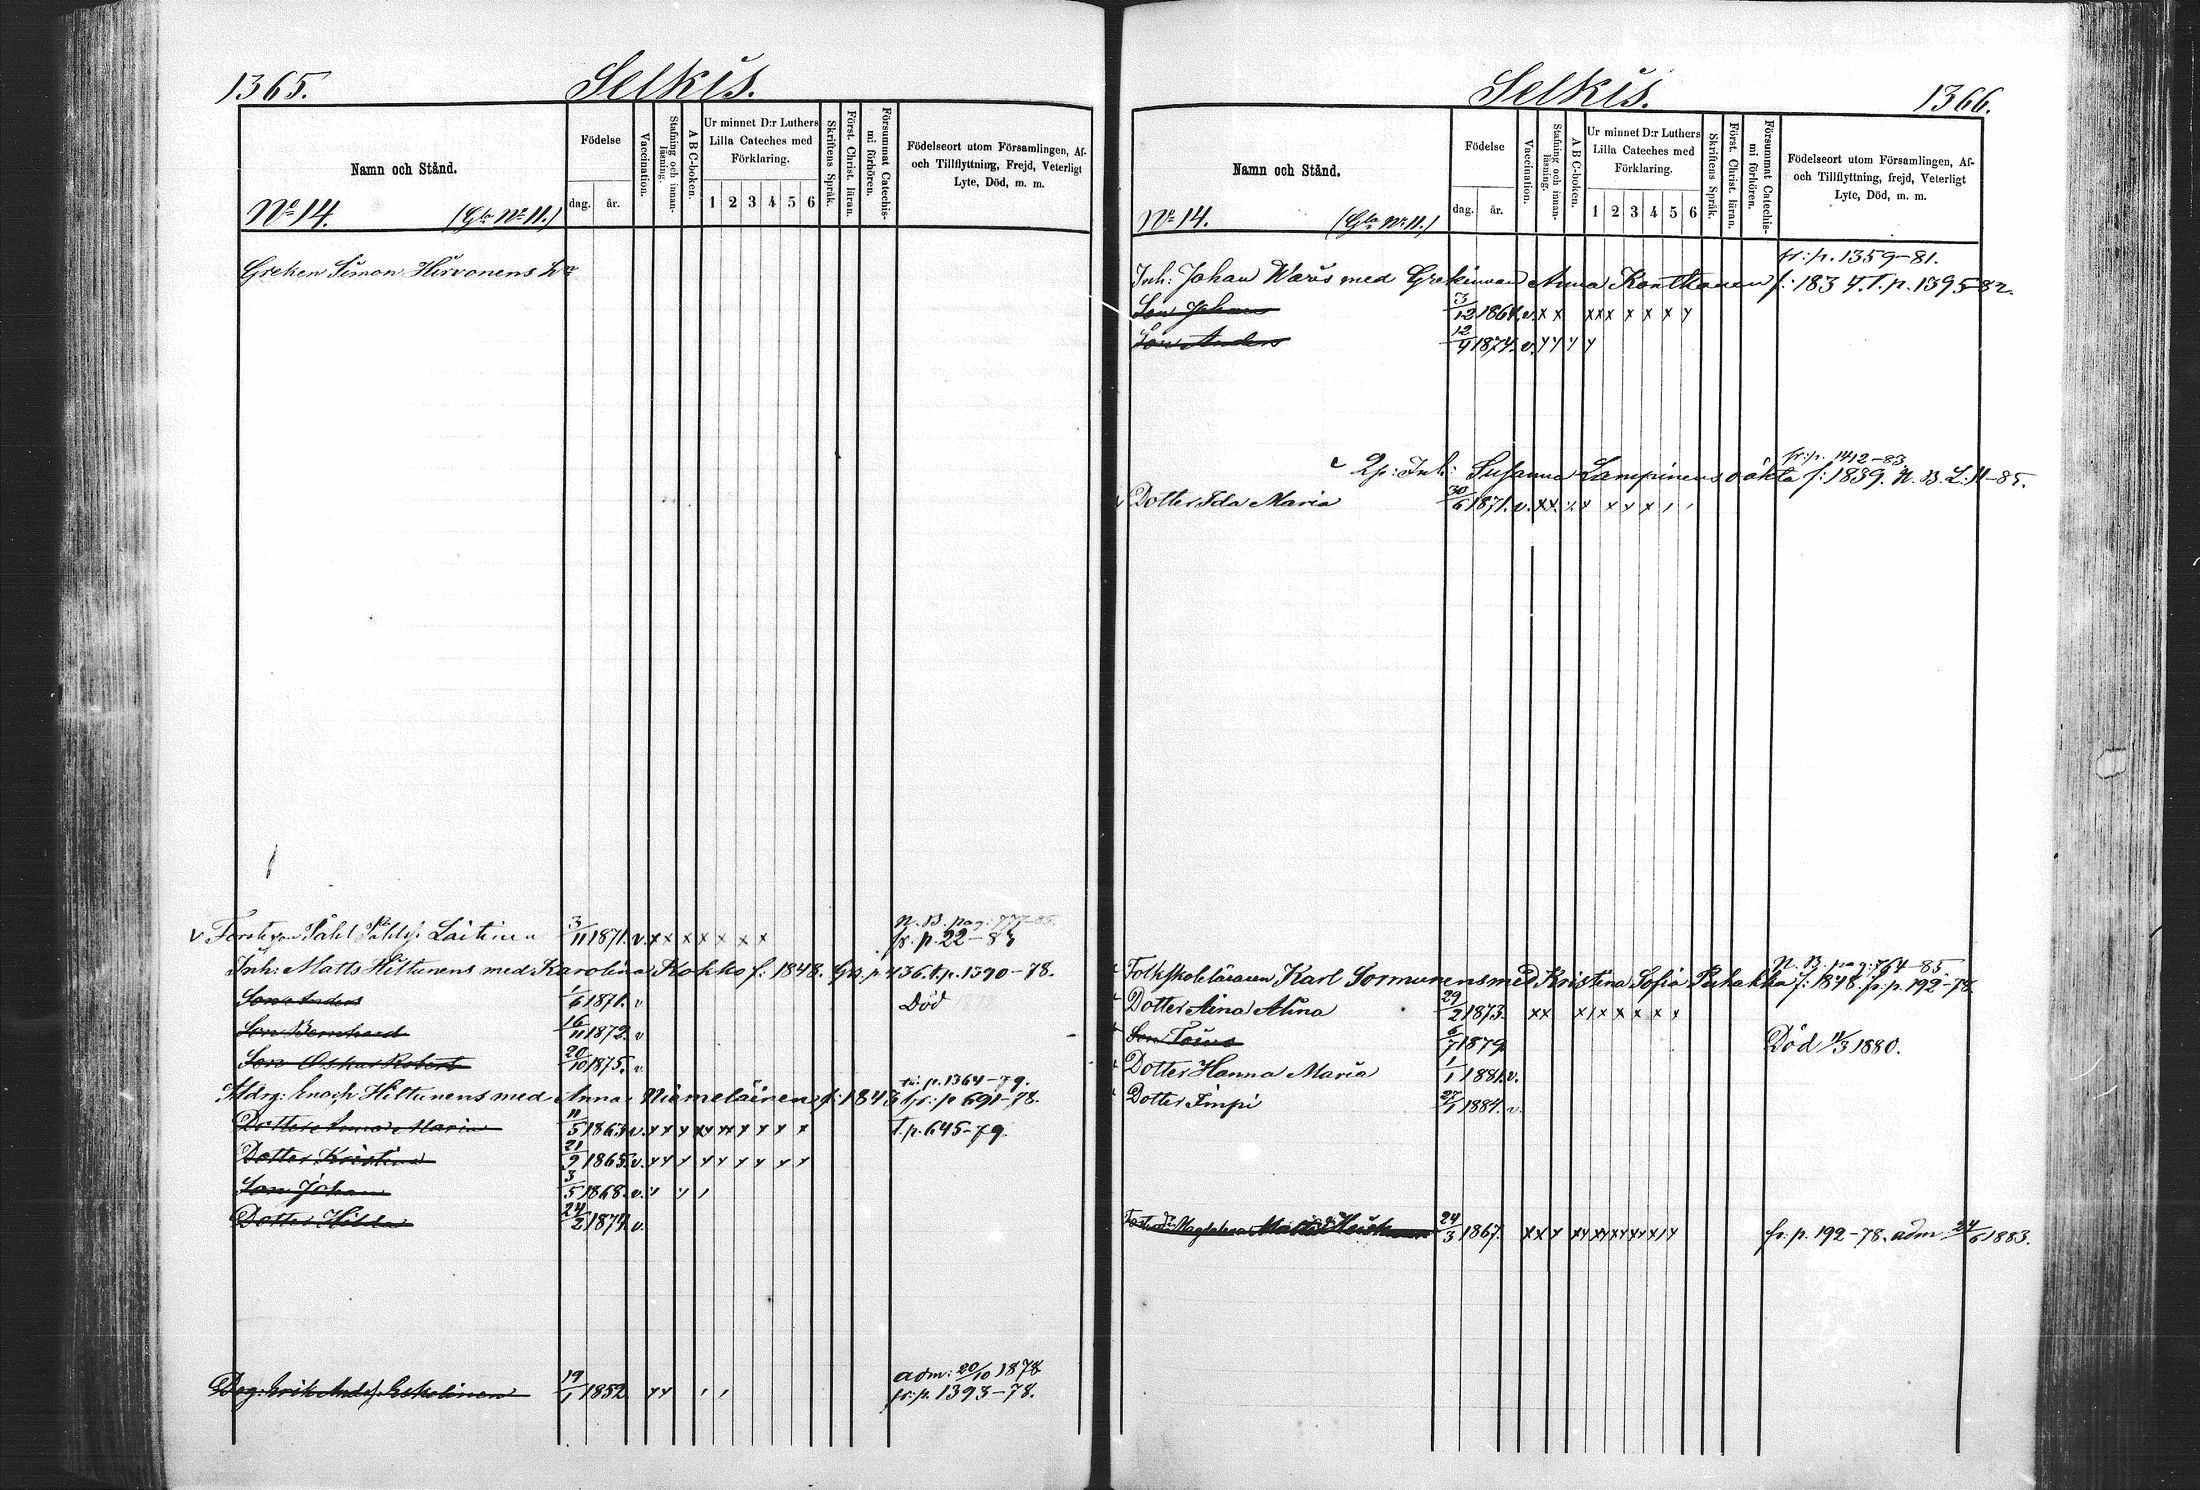 1365.
Selkis.
Namn och Stånd.
Födelse
dag.
år.
Vaccination.
Stafning och innan-läsning.
A B C-boken.
Ur minnet D:r Luthers
Lilla Cateches med
Förklaring.
1 2 3 4 5 6
Skriftens Språk.
Först. Christ. läran.
Försummat Catechis-mi förhören.
Födelseort utom Församlingen, Af-
och Tillflyttning, Frejd, Veterligt
Lyte, Död, m. m.
No 14.
(Gla No 11.)
Greken Simon Hirvonens
N. B. pag: 777-85
v Laitinen 3/11 1871. v. x x x x x x x fr. p. 22-83
Inh: Matts Hiltunens med Karolina Kokko f: 1848. t. p. 1390-78.
Son Anders 1/6 1871. v Död
Son Bernhard 16/11 1872. v
Son Oskar Robert 20/10 1875. v
fr. p. 1364-79.
Enoch Hiltunens med Anna Niemeläinen f: 1843 fr: p 691-78.
Dotter Anna Maria 11/5 1863. v. t. p. 645-79
Dotter Kristina 21/9 1865. v.
Son Johan 3/5 1868. v.
Dotter Hilda 24/2 1874. v.
adm: 20/10 1878
Dog: Erik Eskelinen 19/1 1852 fr. p. 1393-78.
Selkis.
1366.
Namn och Stånd.
Födelse
dag.
år.
Vaccination.
Stafning och innan-läsning.
A B C-boken.
Ur minnet D:r Luthers
Lilla Cateches med
Förklaring.
1 2 3 4 5 6
Skriftens Språk.
Först. Christ. läran.
Försummat Catechis-mi förhören.
Födelseort utom Församlingen, Af-
och Tillflyttning, frejd, Veterligt
Lyte, Död, m. m.
No 14.
(Gla No 11.)
fr: p. 1359-81.
Inh: Johan Waris med Grekinnan Anna Konttonen f: 1834. T. p. 1395-82.
Son Johan 3/12 1864. v. x x x x x x x x
Son Anders 12/9 1874. v.
fr: p. 1412-83
Inh: Susanna Lampinens oäkta f: 1839. N. B. L: 11-85.
v Dotter Ida Maria 30/6 1871. v.
N. B. pag: 764-85
Folkskoleläraren Karl Sormunens med Kristina Sofia Puhakka f: 1848. fr: p. 192-78
Dotter Aina Alina 29/2 1873. x x x x x x x x
Son Toivo 6/7 1879 Död 11/3 1880.
Dotter Hanna Maria 1/1 1881. v.
Dotter Impi 27/1 1884. v.
Magdalena 24/3 1867. fr: p. 192-78. adm: 24/6 1883.